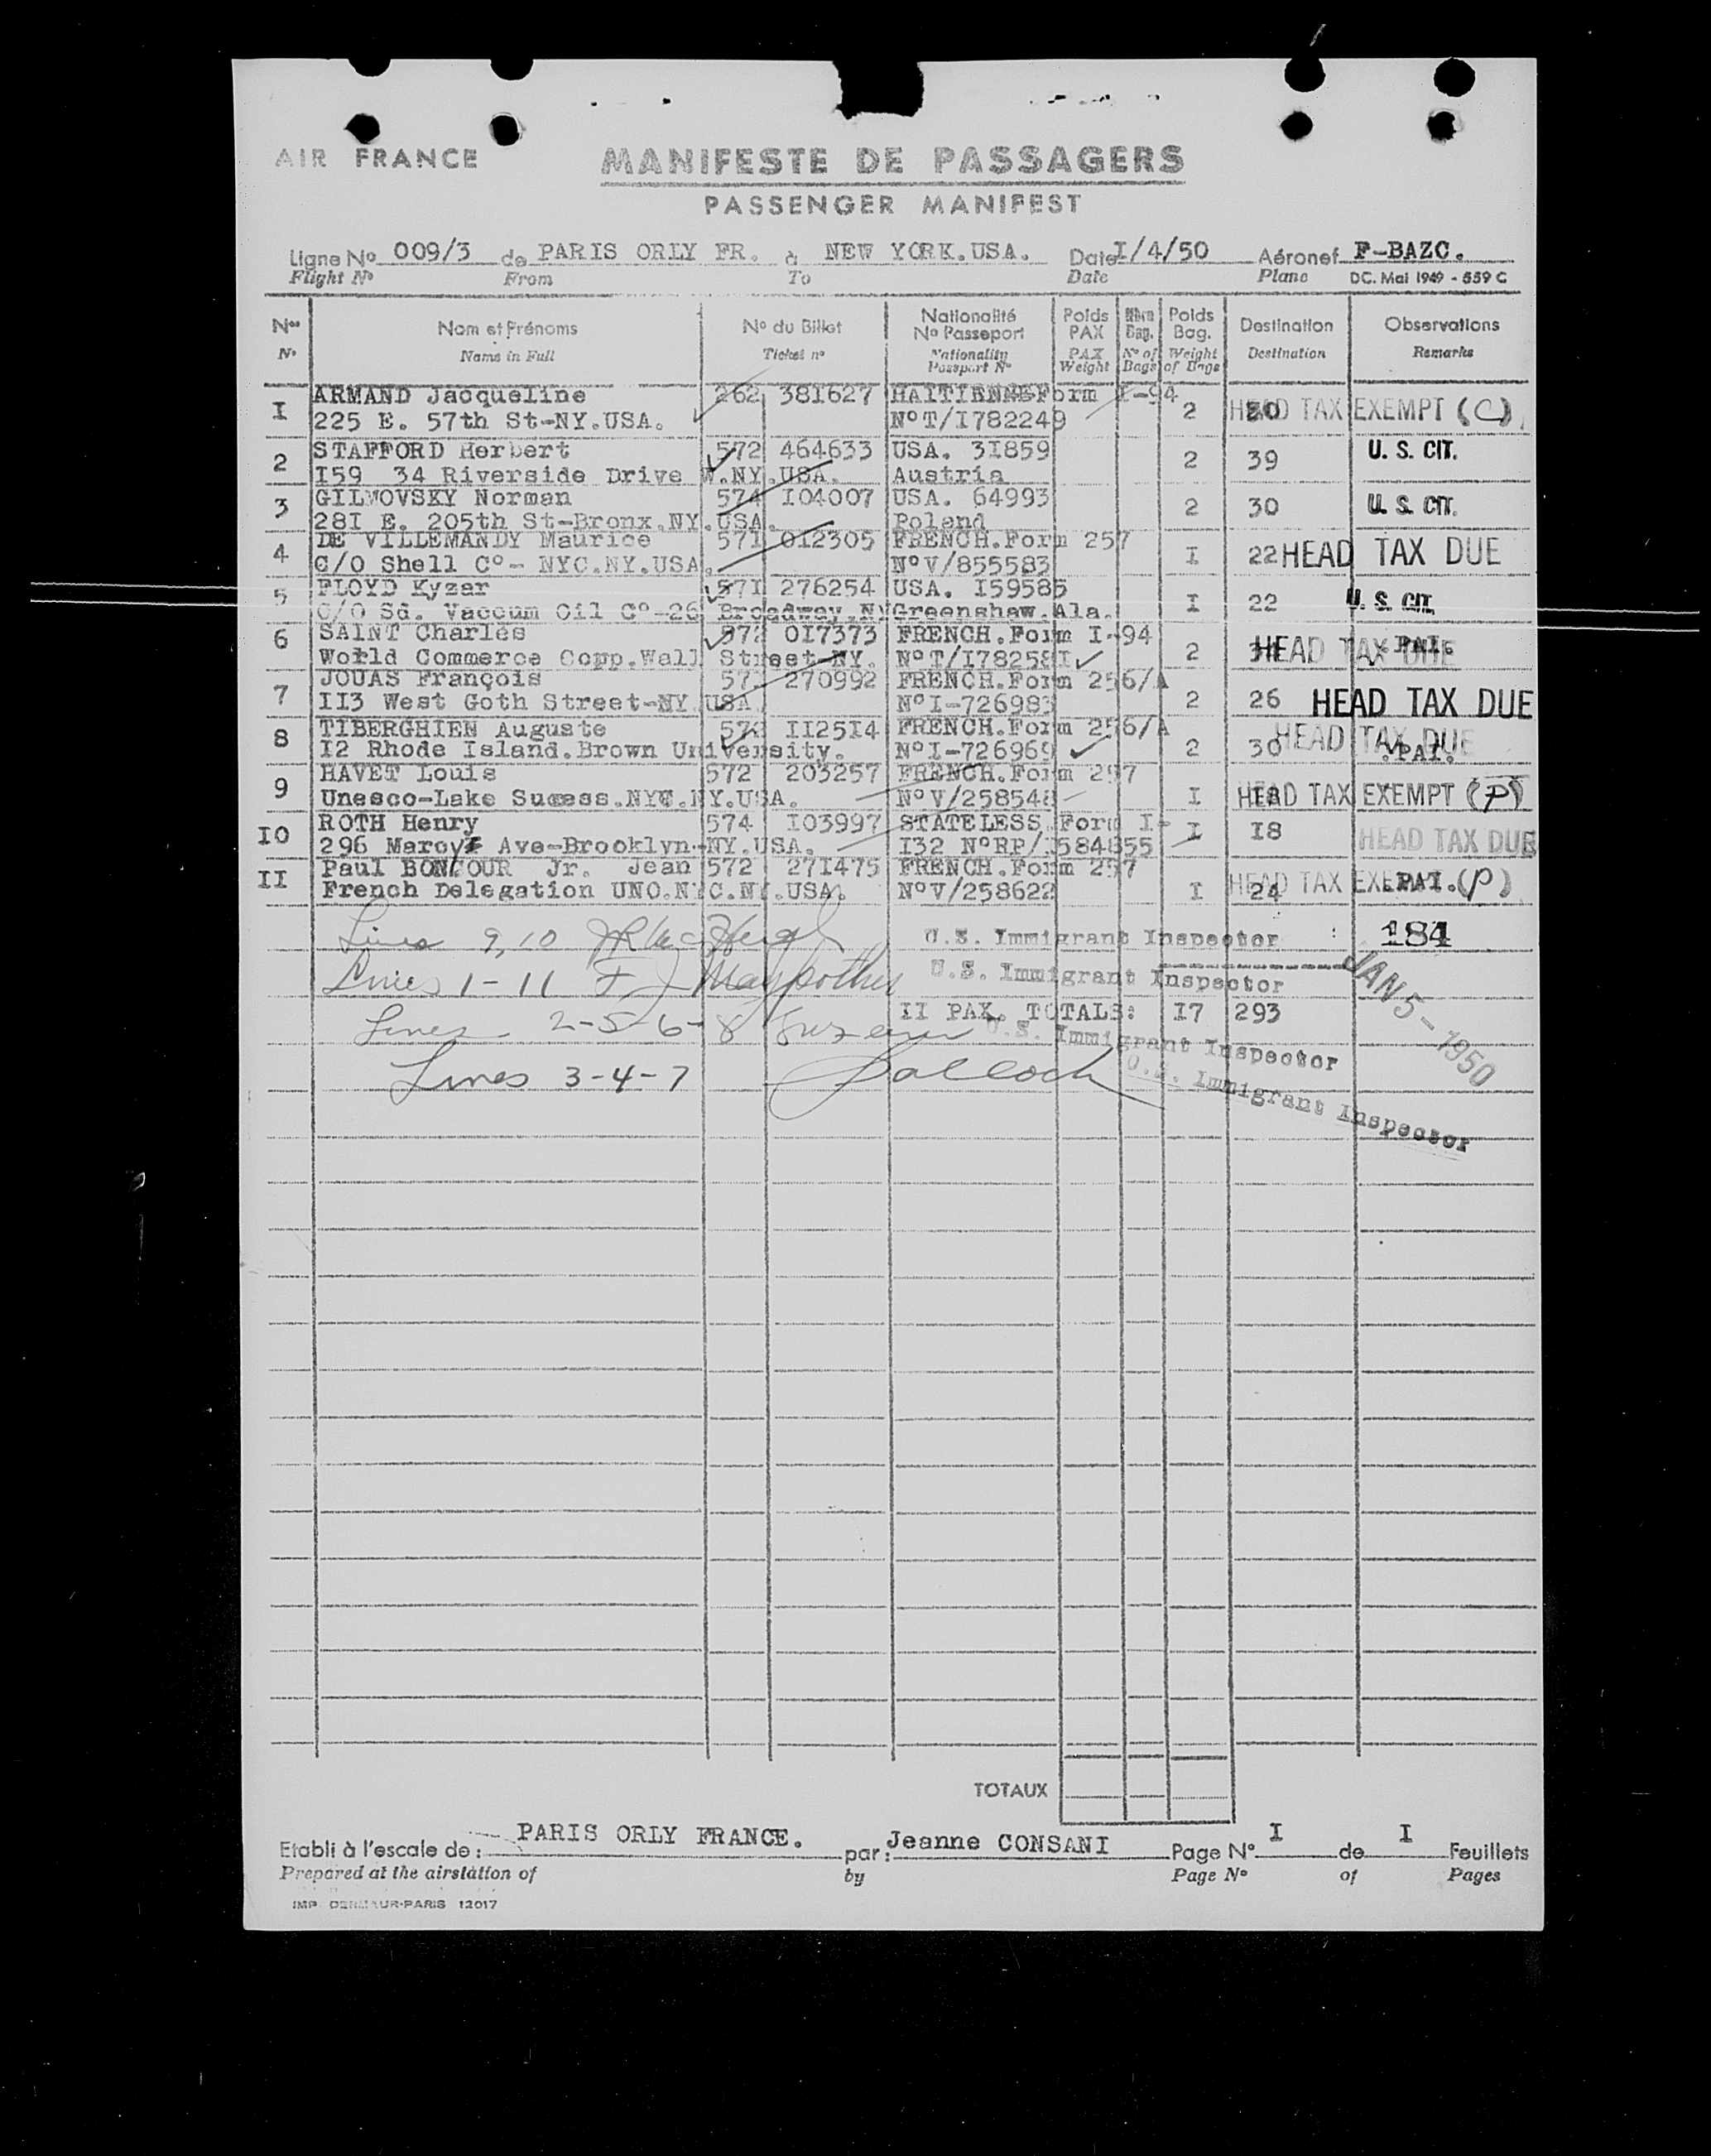 AIR FRANCE
MANIFESTE DE PASSAGERS
PASSENGER MANIFEST
Ligne No 009/3 de PARIS ORLY FR. à NEW YORK.USA. Date I/4/50 Aéronef F-BAZC.
Flight No From To Date Plane DC. Mai 1949 - 559 C
Nos Nom et Prénoms No du Billet Nationalité No Passeport Poids PAX Nbre Bag. Poids Bag. Destination Observations
No Name in Full Ticket no Nationality Passport No PAX Weight No of Bags Weight of Bags Destination Remarks
I ARMAND Jacqueline 262 381627 HAITIENNE Form I-94
225 E. 57th St-NY.USA. NoT/I782249 2 HEAD TAX EXEMPT (C)
2 STAFFORD Herbert 572 464633 USA. 31859 U. S. CIT.
I59 34 Riverside Drive W.NY.USA. Austria 2 39
3 GILWOVSKY Norman 574 I04007 USA. 64993 U. S. CIT.
28I E. 205th St-Bronx.NY.USA. Poland 2 30
4 DE VILLEMANDY Maurice 571 012305 FRENCH.Form 257
C/O Shell Co- NYC.NY.USA. NoV/855583 I 22 HEAD TAX DUE
5 FLOYD Kyzar 57I 276254 USA. I59585
C/O Sd. Vaccum Oil Co-26 Broadway.NY Greenshaw.Ala. I 22 U. S. CIT.
6 SAINT Charles 572 0I7373 FRENCH.Form I-94
World Commerce Copp.Wall Street-NY. NoT/I78258I 2 HEAD TAX DUE .PAI.
7 JOUAS François 57 270992 FRENCH.Form 256/A
II3 West Goth Street-NY.USA NoI-726983 2 26 HEAD TAX DUE
8 TIBERGHIEN Auguste 572 II25I4 FRENCH.Form 256/A
I2 Rhode Island.Brown University. NoI-726969 2 30 HEAD TAX DUE .PAI.
9 HAVET Louis 572 203257 FRENCH.Form 257
Unesco-Lake Sucess.NYC.NY.USA. NoV/258548 I HEAD TAX EXEMPT (P)
IO ROTH Henry 574 I03997 STATELESS.Form I-
296 Marcy Ave-Brooklyn-NY.USA. I32 NoRP/I584855 I I8 HEAD TAX DUE
II Paul BONCOUR Jr. Jean 572 271475 FRENCH.Form 257
French Delegation UNO.NYC.NY.USA. NoV/258622 I 24 HEAD TAX EXEMPT .PAI. (P)
Lines 9,10 U.S. Immigrant Inspector : 184
Lines 1-11 U.S. Immigrant Inspector
JAN 5 - 1950
II PAX. TOTALS: I7 293
Lines 2-5-6-8 U.S. Immigrant Inspector
Lines 3-4-7 U.S. Immigrant Inspector
TOTAUX
Etabli à l'escale de : PARIS ORLY FRANCE. par : Jeanne CONSANI Page No I de I Feuillets
Prepared at the airstation of by Page No of Pages
IMP. PARIS 12017